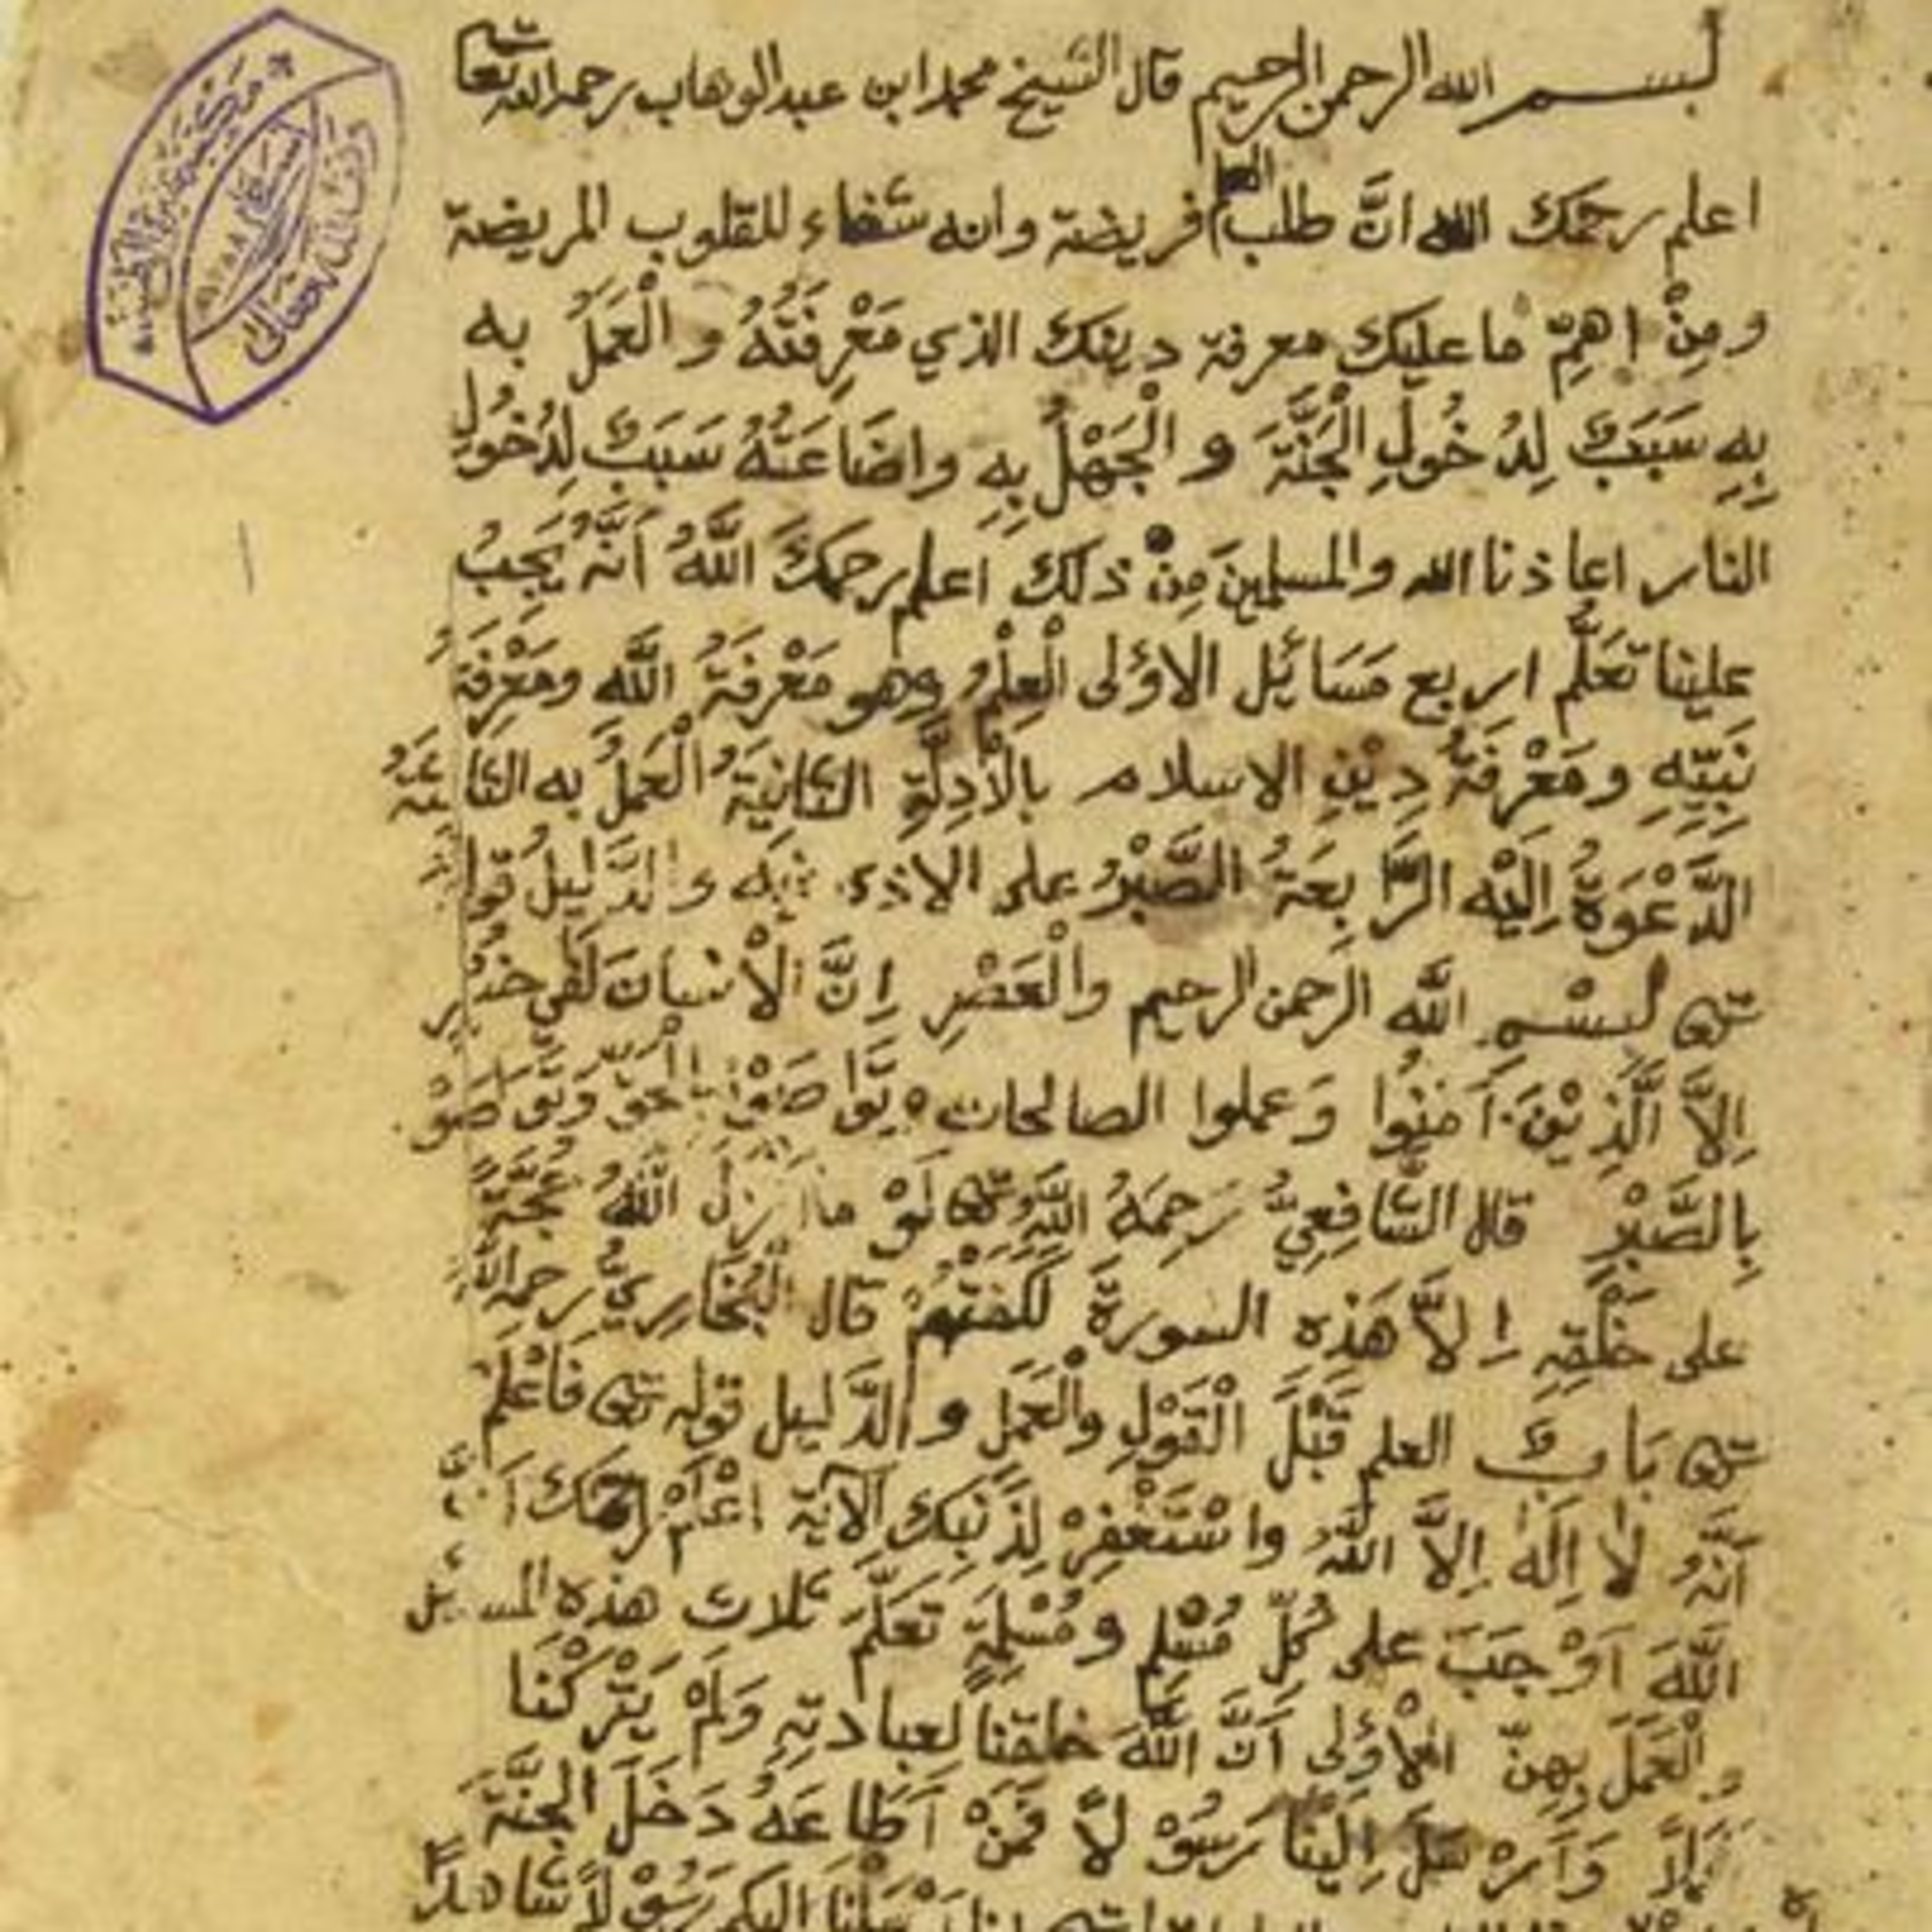 بسم الله الرحمن الرحيم قال الشيخ محمد ابن عبد الوهاب رحمه الله تعا
اعلم رحمك الله انَّ طلب العلم فريضة وانه شفاء للقلوب المريضة
ومِنْ اهمِّ ما عليك معرفة دينك الذي مَعْرِفَتُهُ والْعَمَلُ به
بِهِ سَبَبٌ لِدُخُولِ الْجَنَّةَ و الْجَهْلُ بِهِ واضَاعَتُهُ سَبَبٌ لِدُخُولِ
النار اعاذنا الله والمسلمينَ مِنْ ذلك اعلم رحمكَ اللَّهُ اَنَّهُ يَجِبُ
علينا تَعَلُّم اربع مَسَائِل الاؤلى الْعِلْمُ وهو مَعْرِفَةُ اللَّه ومَعْرِفَةُ
نَبِيِّهِ ومَعْرِفَةُ دِيْنِ الاسلام بالْأَدِلَّةِ الثَّانِيَةُ الْعَمَلُ به الثَّالِثَةُ
الدَّعْوَةُ اِلَيْه الرَّابِعَةُ الصَّبْرُ على الاذى فيه والدَّلِيلُ قوله
تعا بِسْمِ اللَّه الرحمن الرحيم والْعَصْرِ اِنَّ الْاِنْسَانَ لَفِي خُسْرٍ
اِلاَّ الَّذِيْنَ آمَنُوا وَعملوا الصالحات وتَوَاصَوْا بِالْحَقِّ وَتَوَاصَوْ
بِالصَّبْرِ قال الشَّافِعِيُّ رَحِمَهُ اللَّهُ تعا لَوْ ما انزلَ اللَّهُ حُجَّةً
على خَلْقِهِ اِلاَّ هَذِهِ السورةَ لَكَفَتْهُمْ قال الْبُخَارِيُّ رحمه اللَّهُ
تعا بَابٌ العلم قَبْلَ الْقَوْلِ والْعَمَلِ والدَّليل قوله تعا فَاعْلَمْ
اَنَّهُ لاَ اِلَهَ اِلاَّ اللَّهُ واسْتَغْفِرْ لِذَنْبِكَ الآيَة اعْلَمْ رحمك اَنَّ
اللَّهَ اَوْجَبَ على كُلِّ مُسْلِمٍ ومُسْلِمَةٍ تَعَلُّمَ ثلاث هذه المسئل
والْعَمَلَ بِهِنَّ الْاؤلى اَنَّ اللَّهَ خلقنا لعبادتِهِ وَلَمْ يَتْرُكْنَا
هَمَلاً وَاَرْسَلَ اِلَيْنَا رَسُوْلاً فَمَنْ اَطَاعَهُ دَخَلَ الجَنَّةَ
اَرْسَلْنَا اليكم رَسُوْلاً شاهداً